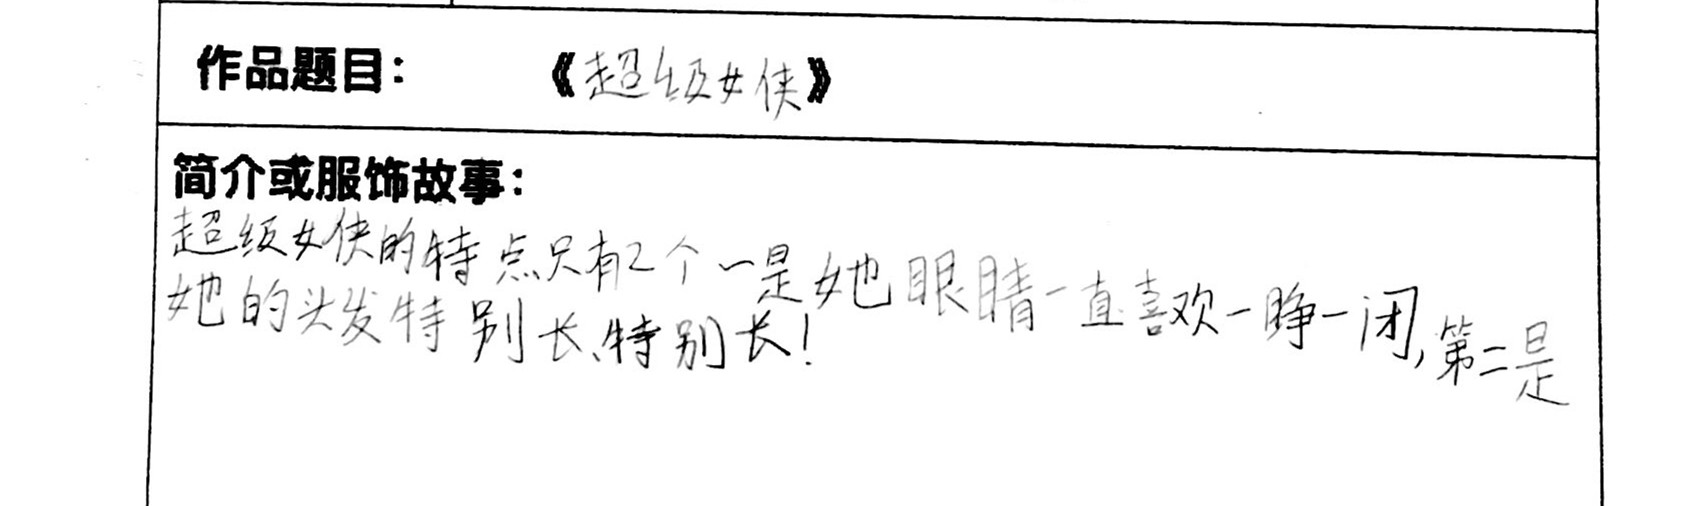 作品题目: 《超级女侠》
简介或服饰故事:
超级女侠的特点只有2个一是她眼睛一直喜欢一睁一闭,第二是
她的头发特别长、特别长!